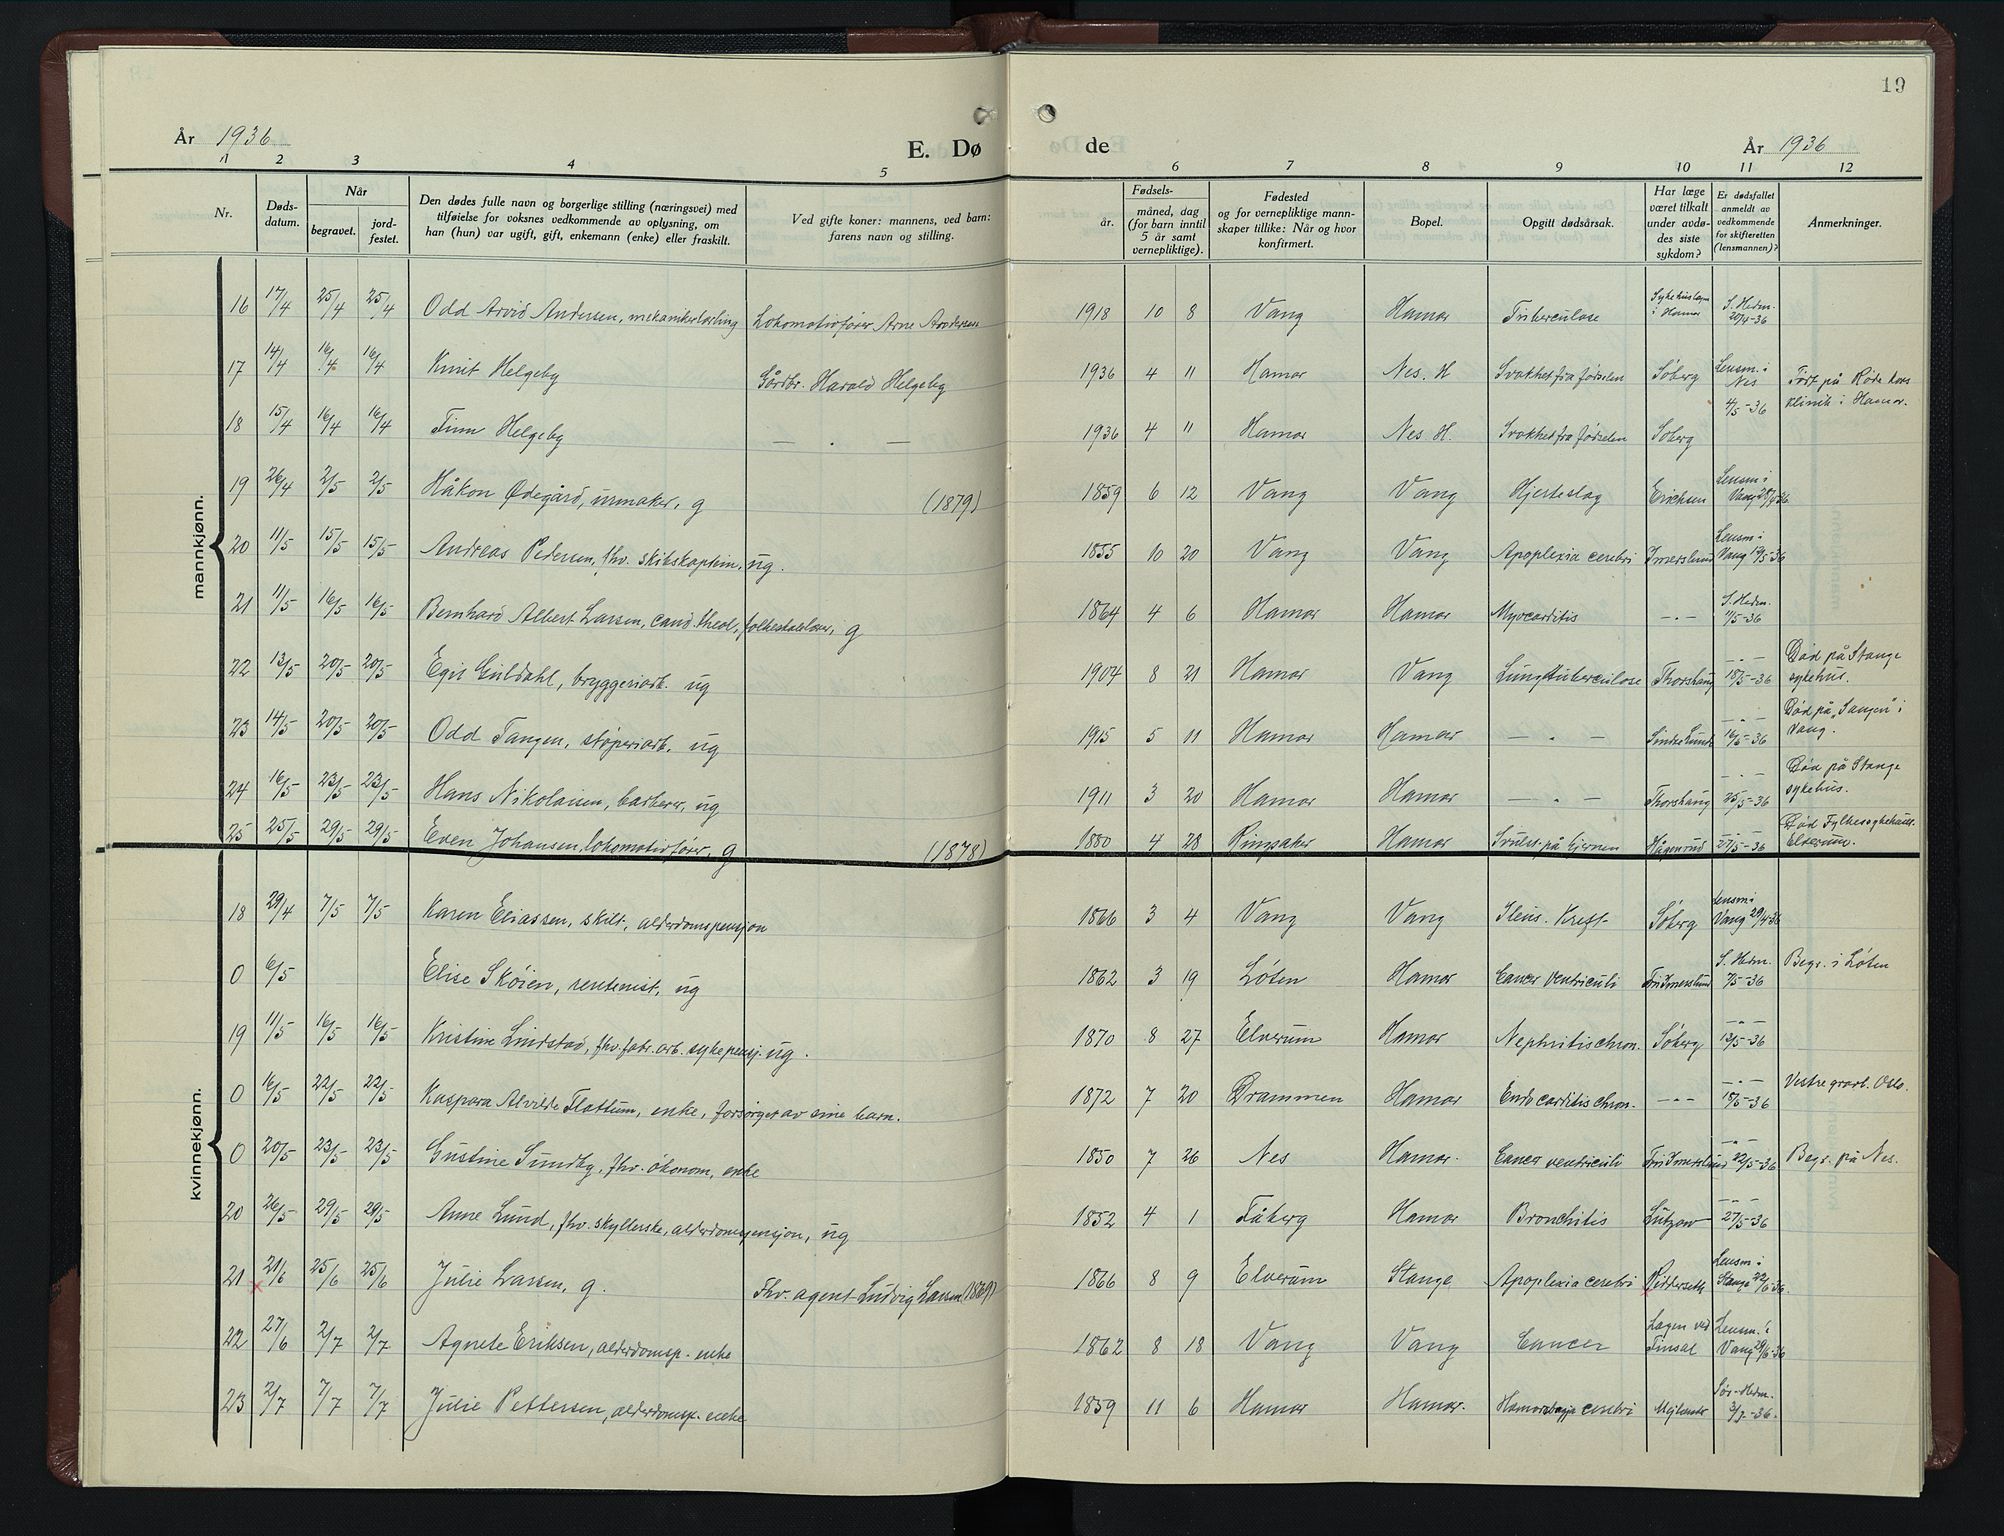 19
År 1936 E. Dø de År 1936
1 2 3 4 5 6 7 8 9 10 11 12
Nr. Døds-datum. Når begravet. jord-festet. Den dødes fulle navn og borgerlige stilling (næringsvei) med tilføielse for voksnes vedkommende av oplysning, om han (hun) var ugift, gift, enkemann (enke) eller fraskilt. Ved gifte koner: mannens, ved barn: farens navn og stilling. Fødsels- år. måned, dag (for barn inntil 5 år samt vernepliktige). Fødested og for vernepliktige mannskaper tillike: Når og hvor konfirmert. Bopel. Opgitt dødsårsak. Har læge været tilkalt under avdødes siste sykdom? Er dødsfallet anmeldt av vedkommende for skifteretten (lensmannen)? Anmerkninger.
mannkjønn.
16 17/4 25/4 25/4 Odd Arvid Andersen, mekanikerlærling Lokomotivfører Arne Andersen 1918 10 8 Vang Hamar Tuberculose Sykehuslægen i Hamar S. Hedm. 20/4-36
17 14/4 16/4 16/4 Knut Helgeby Gårdbr. Harald Helgeby 1936 4 11 Hamar Nes. H Svakhet fra fødselen Søberg Lensm. i Nes 4/5-36 Født på Røde kors klinik i Hamar.
18 15/4 16/4 16/4 Finn Helgeby — . — 1936 4 11 Hamar Nes. H. Svakhet fra fødselen Søberg
19 26/4 2/5 2/5 Håkon Ødegård, urmaker, g (1879) 1859 6 12 Vang Vang Hjerteslag Erichsen Lensm i Vang 28/4-36
20 11/5 15/5 15/5 Andreas Pedersen, fhv. skibskaptein, ug. 1855 10 20 Vang Vang Apoplexia cerebri Imerslund Lensm i Vang 15/5-36
21 11/5 16/5 16/5 Bernhard Albert Larsen, cand. theol., folkeskolelærer, g 1864 4 6 Hamar Hamar Myocarditis — . — S. Hedm. 11/5-36
22 13/5 20/5 20/5 Egil Guldahl, bryggeriarb. ug 1904 8 21 Hamar Vang Lungetuberculose Thorshaug — . — 18/5-36 Død på Stange sykehus.
23 14/5 20/5 20/5 Odd Tangen, støperiarb. ug 1915 5 11 Hamar Hamar — . — Sindre Lunde — . — 16/5-36 Død på "Sangen" i Vang.
24 16/5 23/5 23/5 Hans Nikolaisen, barberer, ug 1911 3 20 Hamar Hamar — . — Thorshaug — . — 25/5-36 Død på Stange sykehus.
25 25/5 29/5 29/5 Even Johansen, lokomotivfører, g (1878) 1880 4 28 Ringsaker Hamar Svulst på hjernen Hågenrud — . — 27/5-36 Død Fylkessykehuset Elverum.
kvinnekjønn.
18 29/4 7/5 7/5 Karen Eliassen, skilt, alderdomspensjon 1866 3 4 Vang Vang Ileus. Kreft Søberg Lensm i Vang 29/4-36
0 6/5 Elise Skøien, rentenist, ug 1862 3 19 Løten Hamar Cancer ventriculi Fru Imerslund S. Hedm. 7/5-36 Begr. i Løten
19 11/5 16/5 16/5 Kristine Lindstad, fhv. fabr. arb. sykepensj. ug. 1870 8 27 Elverum Hamar Nephritis chron. Søberg — . — 13/5-36
0 16/5 22/5 22/5 Kaspara Alvilde Flattum, enke, forsørget av sine barn. 1872 7 20 Drammen Hamar Endocarditis chron. — . — — . — 18/5-36 Vestre gravl. Oslo.
0 20/5 23/5 23/5 Gustine Sundby, fhv. økonom, enke 1850 7 26 Nes Hamar. Cancer ventriculi Fru Imerslund — . — 22/5-36 Begr. på Nes.
20 26/5 29/5 29/5 Anne Lund, fhv. skyllerske, alderdomspensjon, ug 1852 4 1 Fåberg Hamar Bronchitis Lützow — . — 27/5-36
21 21/6 25/6 25/6 Julie Larsen, g. Fhv. agent Ludvig Larsen (1869) 1866 8 9 Elverum Stange Apoplexia cerebri Riddersett Lensm i Stange 22/6-36.
22 27/6 2/7 2/7 Agnete Eriksen, alderdomsp. enke 1862 8 18 Vang Vang Cancer Lægen ved Finsal Lensm. i Vang 29/6-36
23 2/7 7/7 7/7 Julie Pettersen, alderdomsp. enke 1859 11 6 Hamar Hamar. cerebri Sør-Hedm. 3/7-36.